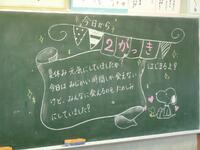 今日から
2がっき
はじまるよ!
夏休み元気にしていましたか?
今日はみじかい時間しか会えない
けど、みんなに会えるのをたのしみ
にしていました?